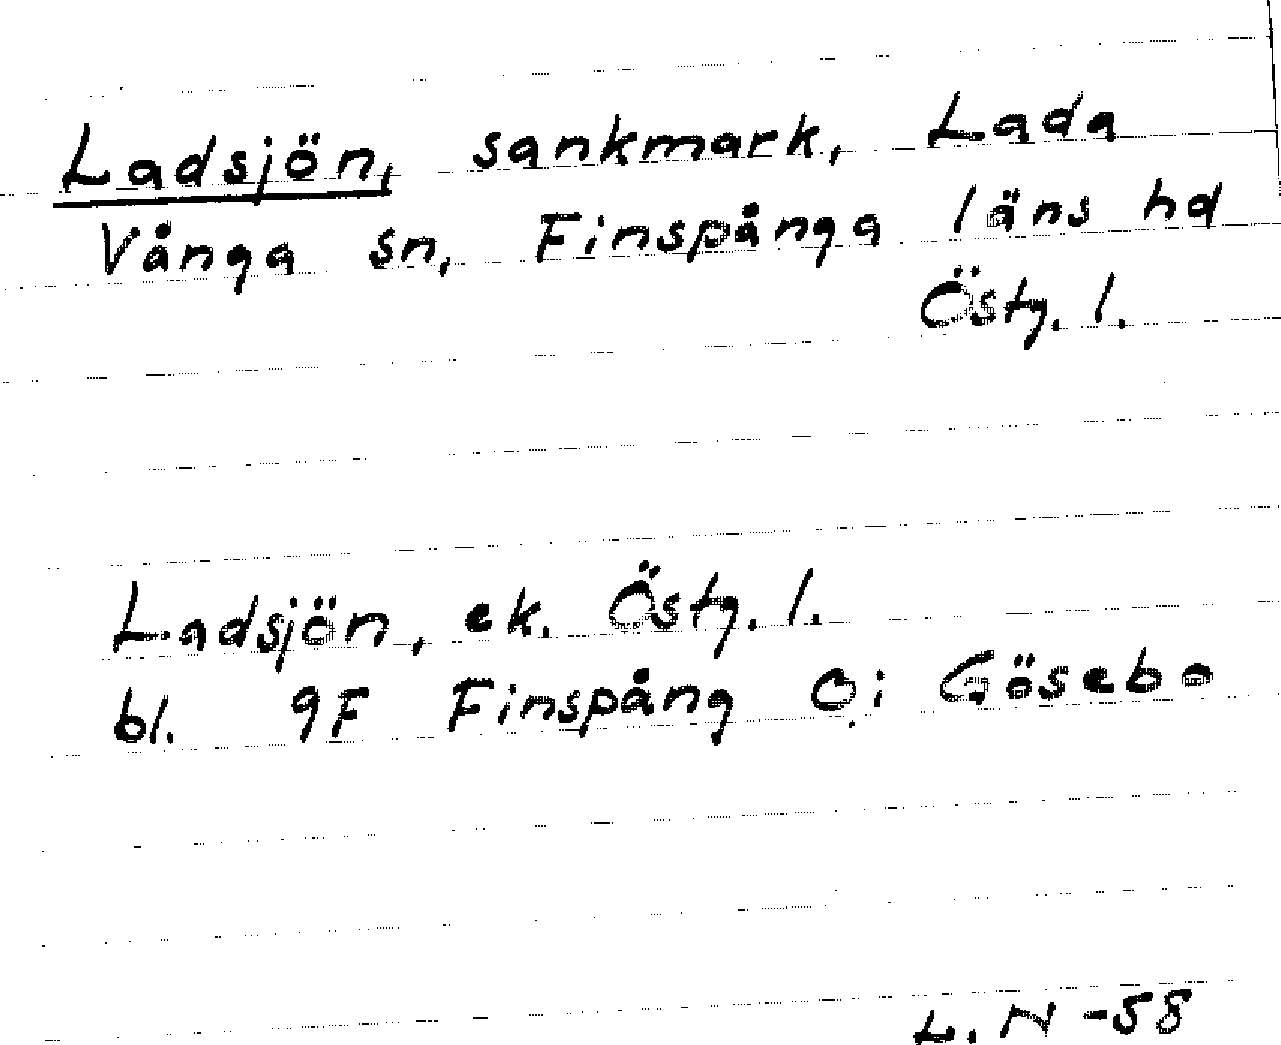 Ladsjön, sankmark, Lada
Vånga sn, Finspånga läns hd
Östg. l.
Ladsjön, ek. Östg. l.
bl. 9F Finspång Oi Gösebo
L. N -58